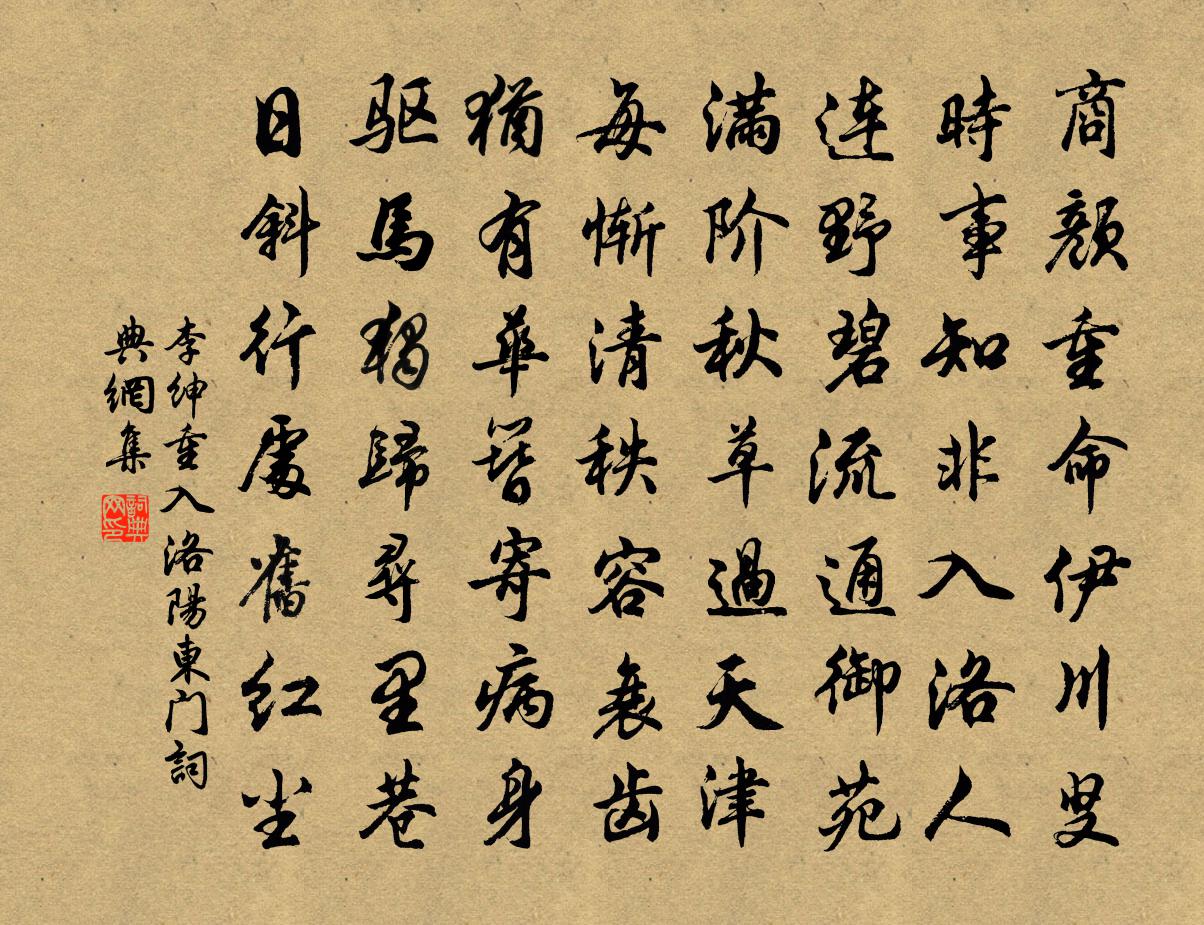 商颜重命伊川叟
時事知非入洛人
连野碧流通御苑
满阶秋草過天津
每惭清秩容衰齿
猶有華簪寄病身
驱馬独歸尋里巷
日斜行處舊红尘
李绅重入洛陽東门詞
典網集
詞典网印